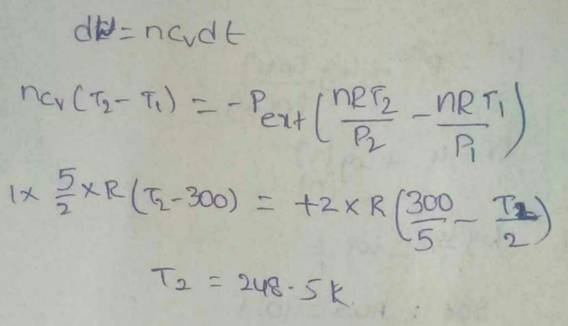 dW = nCvdt
nCv(T₂ - T₁) = -Pext(nRT₂/P₂ - nRT₁/P₁)
1 x 5/2 x R(T₂-300) = +2 x R(300/5 - T₂/2)
T₂ = 248.5 K